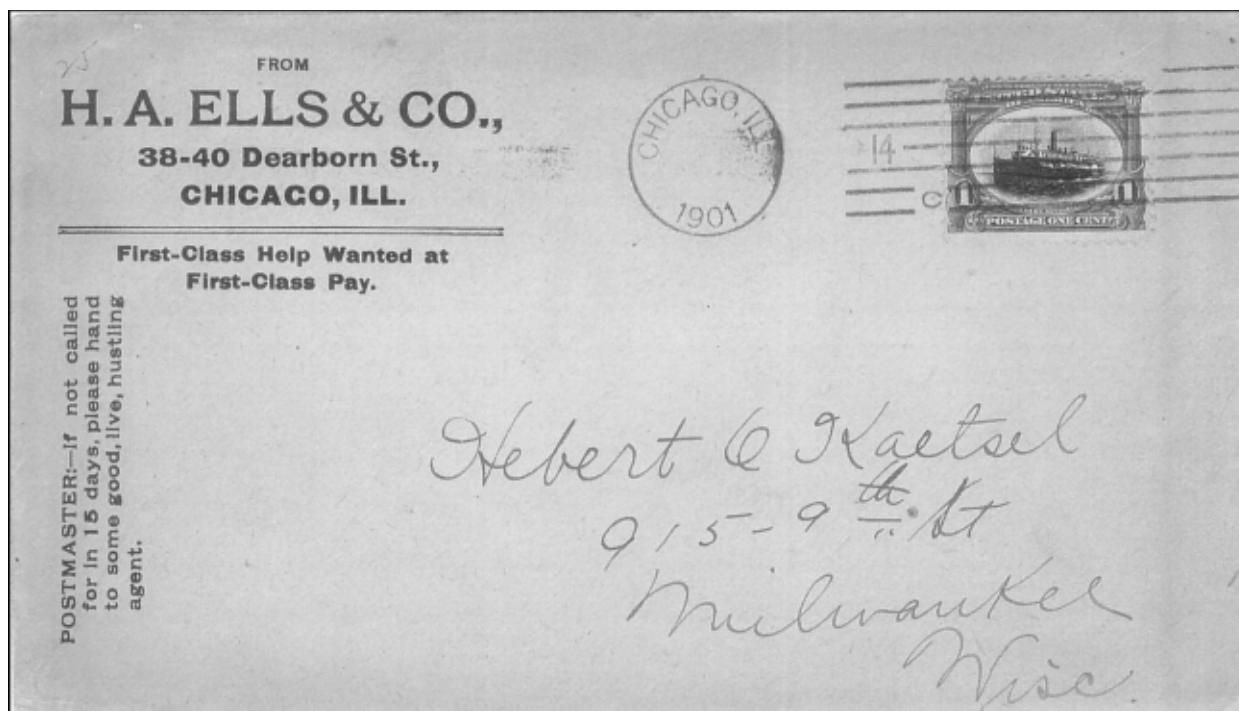 25
FROM
H. A. ELLS & CO.,
38-40 Dearborn St.,
CHICAGO, ILL.
First-Class Help Wanted at
First-Class Pay.
POSTMASTER:—If not called
for in 15 days, please hand
to some good, live, hustling
agent.
CHICAGO, ILL
1901
14
C
1 1
POSTAGE ONE CENT
Hebert C Kaetsel
915-9th St
Milwaukee
Wisc.